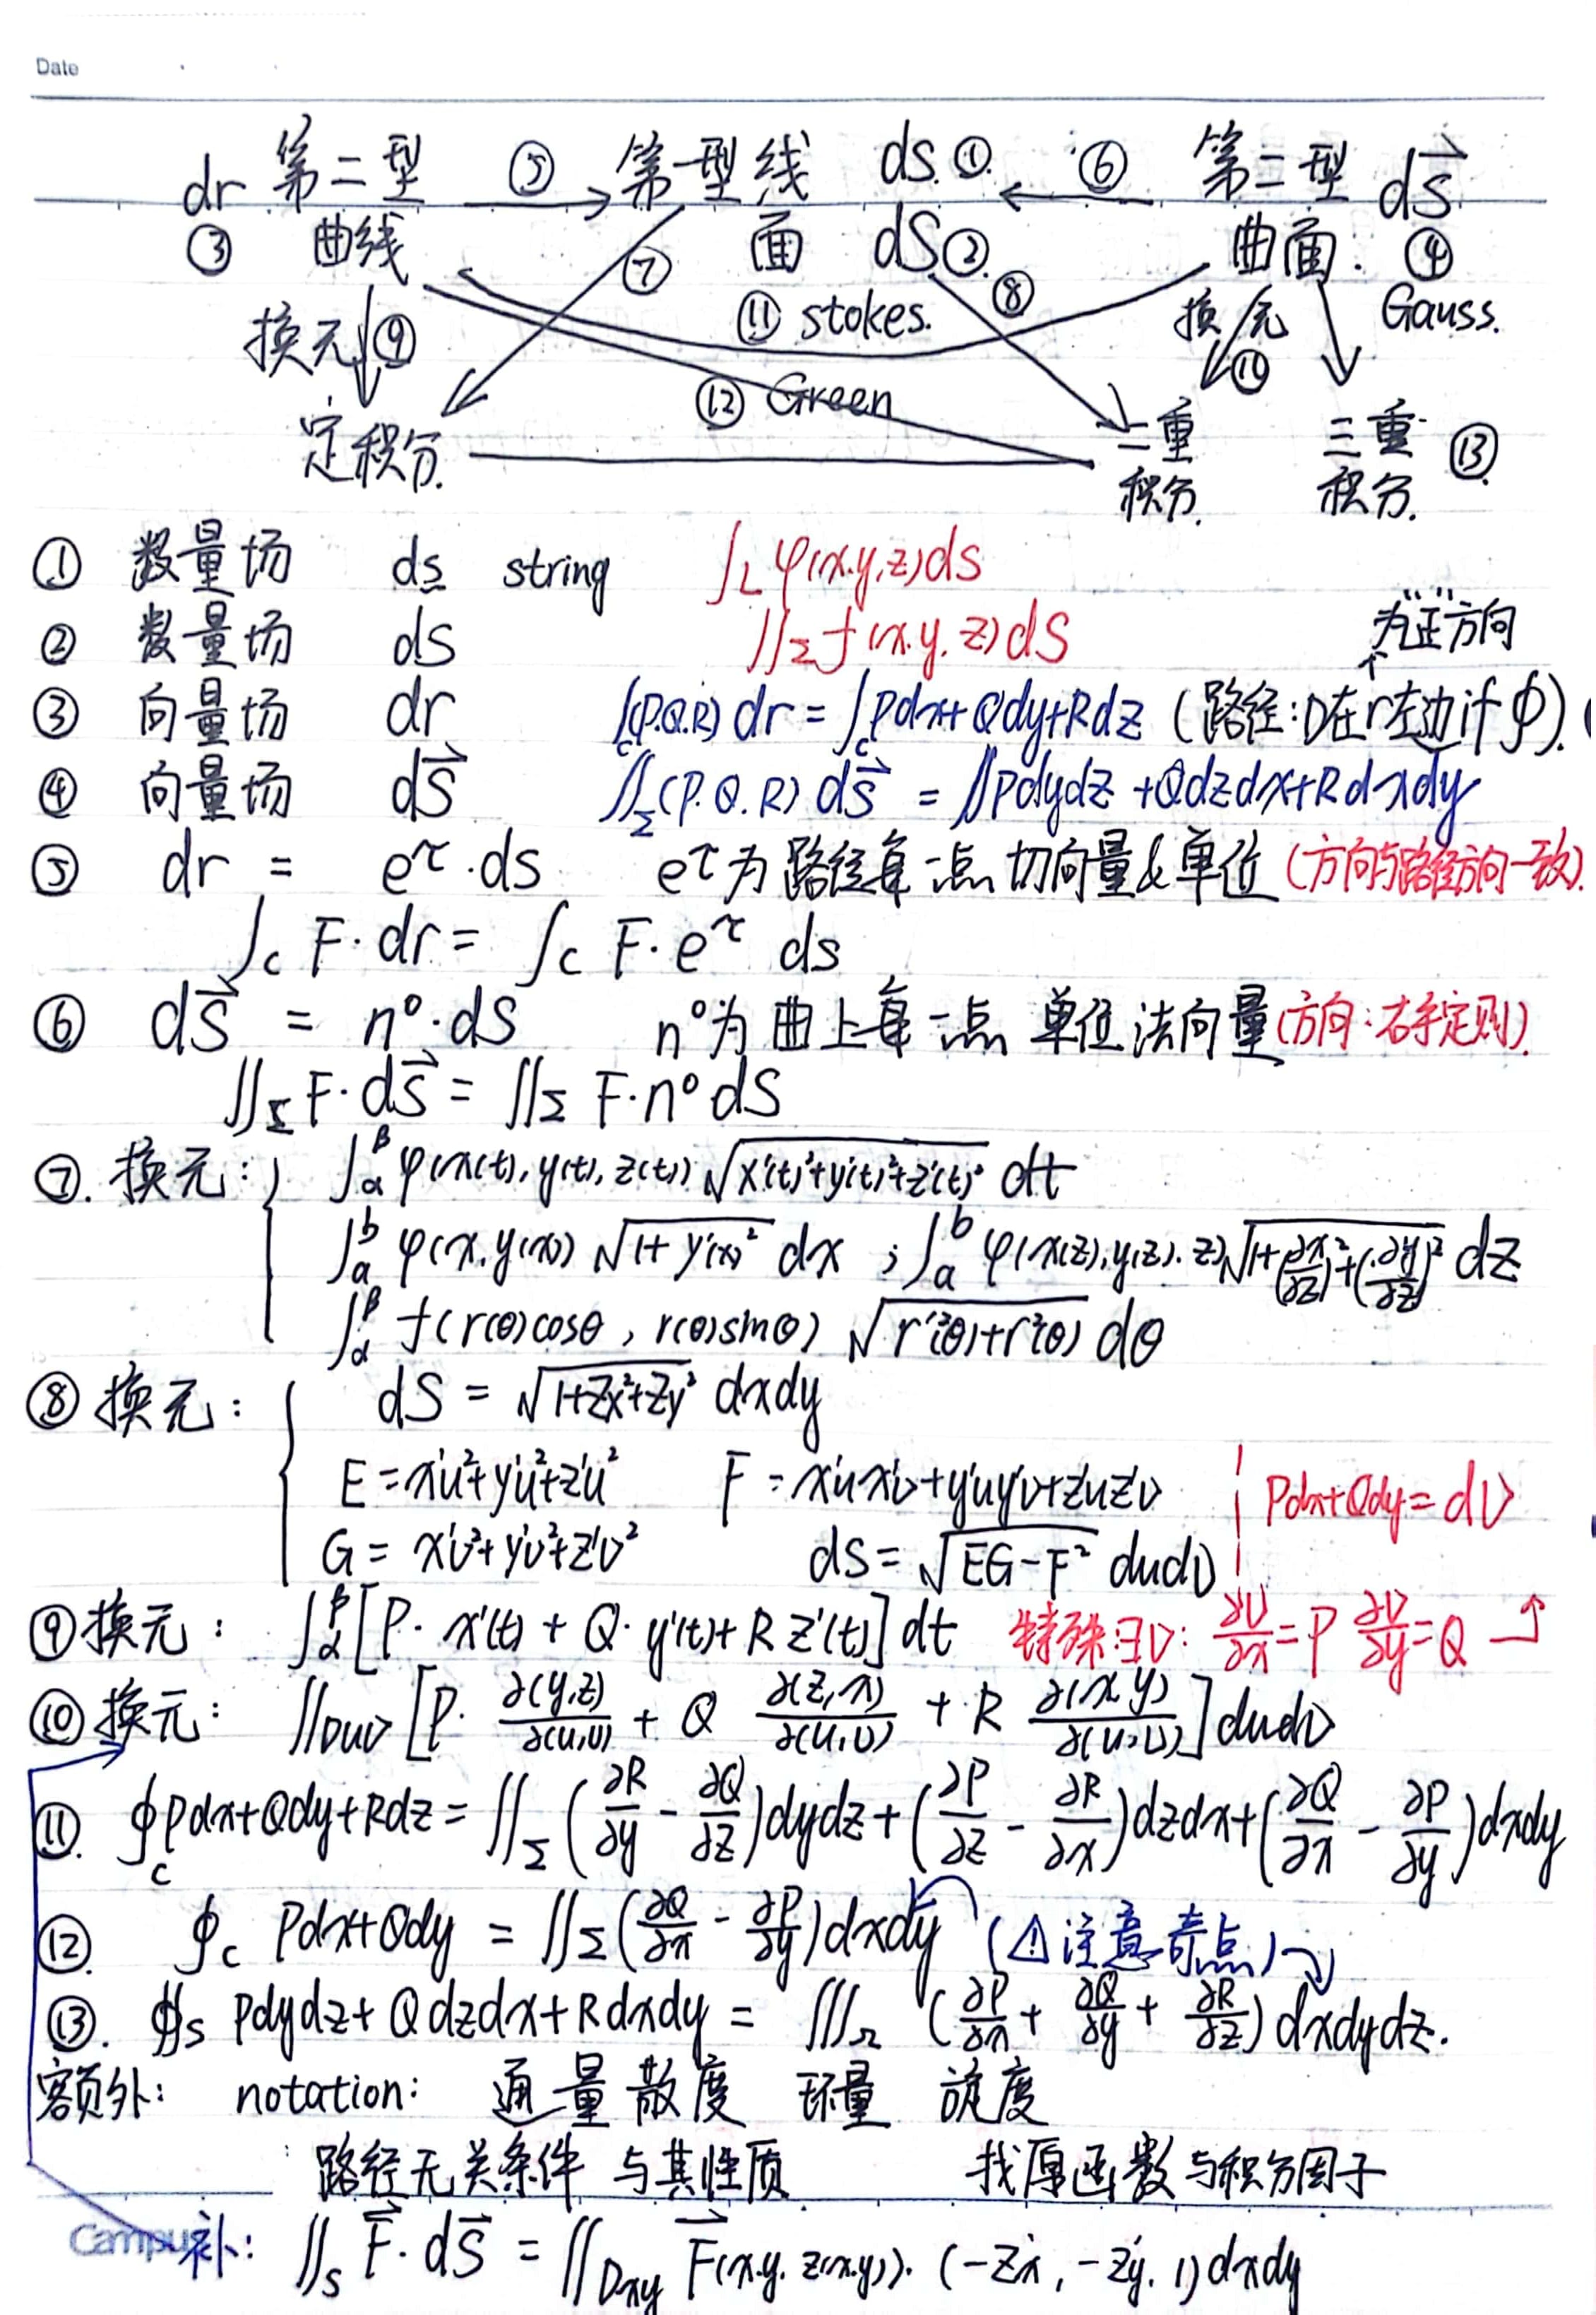 Date
dr 第二型 ⑤ 第一型线 ds.① ⑥ 第二型 d\vec{S}
③ 曲线 ⑦ 面 dS② 曲面: ④
换元 ⑨ ⑪ stokes. ⑧ 换元 ⑩ Gauss.
⑫ Green
定积分. 二重积分. 三重积分. ⑬
① 数量场 ds string ∫_L φ(x.y,z)ds
② 数量场 dS ∬_Σ f(x.y.z)dS 为“正”方向
③ 向量场 dr ∫_c(P.Q.R) dr = ∫_c Pdx+Qdy+Rdz (路径:D在r左边if ∮).
④ 向量场 d\vec{S} ∬_Σ(P.Q.R) d\vec{S} = ∬Pdydz+Qdzdx+Rdxdy
⑤ dr = e^τ·ds e^τ为路径每一点切向量&单位 (方向与路径方向一致).
∫_c F·dr = ∫_c F·e^τ ds
⑥ d\vec{S} = n°·dS n°为曲上每一点 单位法向量(方向:右手定则).
∬_Σ F·d\vec{S} = ∬_Σ F·n° dS
⑦. 换元: ∫_α^β φ(x(t),y(t),z(t)) √(x'(t)²+y'(t)²+z'(t)²) dt
∫_a^b φ(x,y(x)) √(1+y'(x)²) dx ; ∫_a^b φ(x(z),y(z).z)√(1+(∂x/∂z)²+(∂y/∂z)²) dz
∫_α^β f(r(θ)cosθ, r(θ)sinθ) √(r'²(θ)+r²(θ)) dθ
⑧ 换元: dS = √(1+Zx²+Zy²) dxdy
E = x'u²+y'u²+z'u² F = x'ux'v+y'uy'v+z'uz'v Pdx+Qdy=dU
G = x'v²+y'v²+z'v² dS = √(EG-F²) dudv
⑨换元: ∫_α^β [P·x'(t) + Q·y'(t)+R z'(t)] dt 特殊:∃U: ∂U/∂x=P ∂U/∂y=Q
⑩换元: ∬_Duv [P·∂(y,z)/∂(u,v) + Q ∂(z,x)/∂(u,v) + R ∂(x,y)/∂(u,v)] dudv
⑪. ∮_c Pdx+Qdy+Rdz = ∬_Σ (∂R/∂y - ∂Q/∂z)dydz+(∂P/∂z - ∂R/∂x)dzdx+(∂Q/∂x - ∂P/∂y)dxdy
⑫. ∮_c Pdx+Qdy = ∬_Σ(∂Q/∂x - ∂P/∂y)dxdy (⚠注意奇点)
⑬. ∯_S Pdydz+Qdzdx+Rdxdy = ∭_Ω (∂P/∂x + ∂Q/∂y + ∂R/∂z) dxdydz.
额外: notation: 通量 散度 环量 旋度
路径无关条件 与其性质 找原函数与积分因子
Campus
补: ∬_S \vec{F}·d\vec{S} = ∬_Dxy \vec{F}(x.y.z(x.y))·(-z'x, -z'y, 1) dxdy